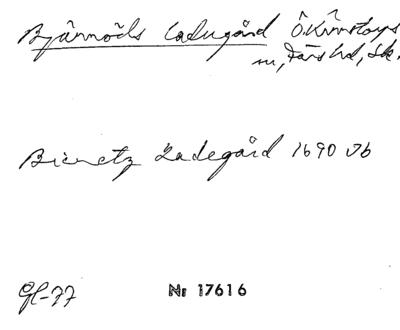 Bjärröds Ladugård Ö. Kärrstorps
sn, Färs hd, Sk.
Bieretz Ladegård 1690 Jb
Gl-77 Nr 17616